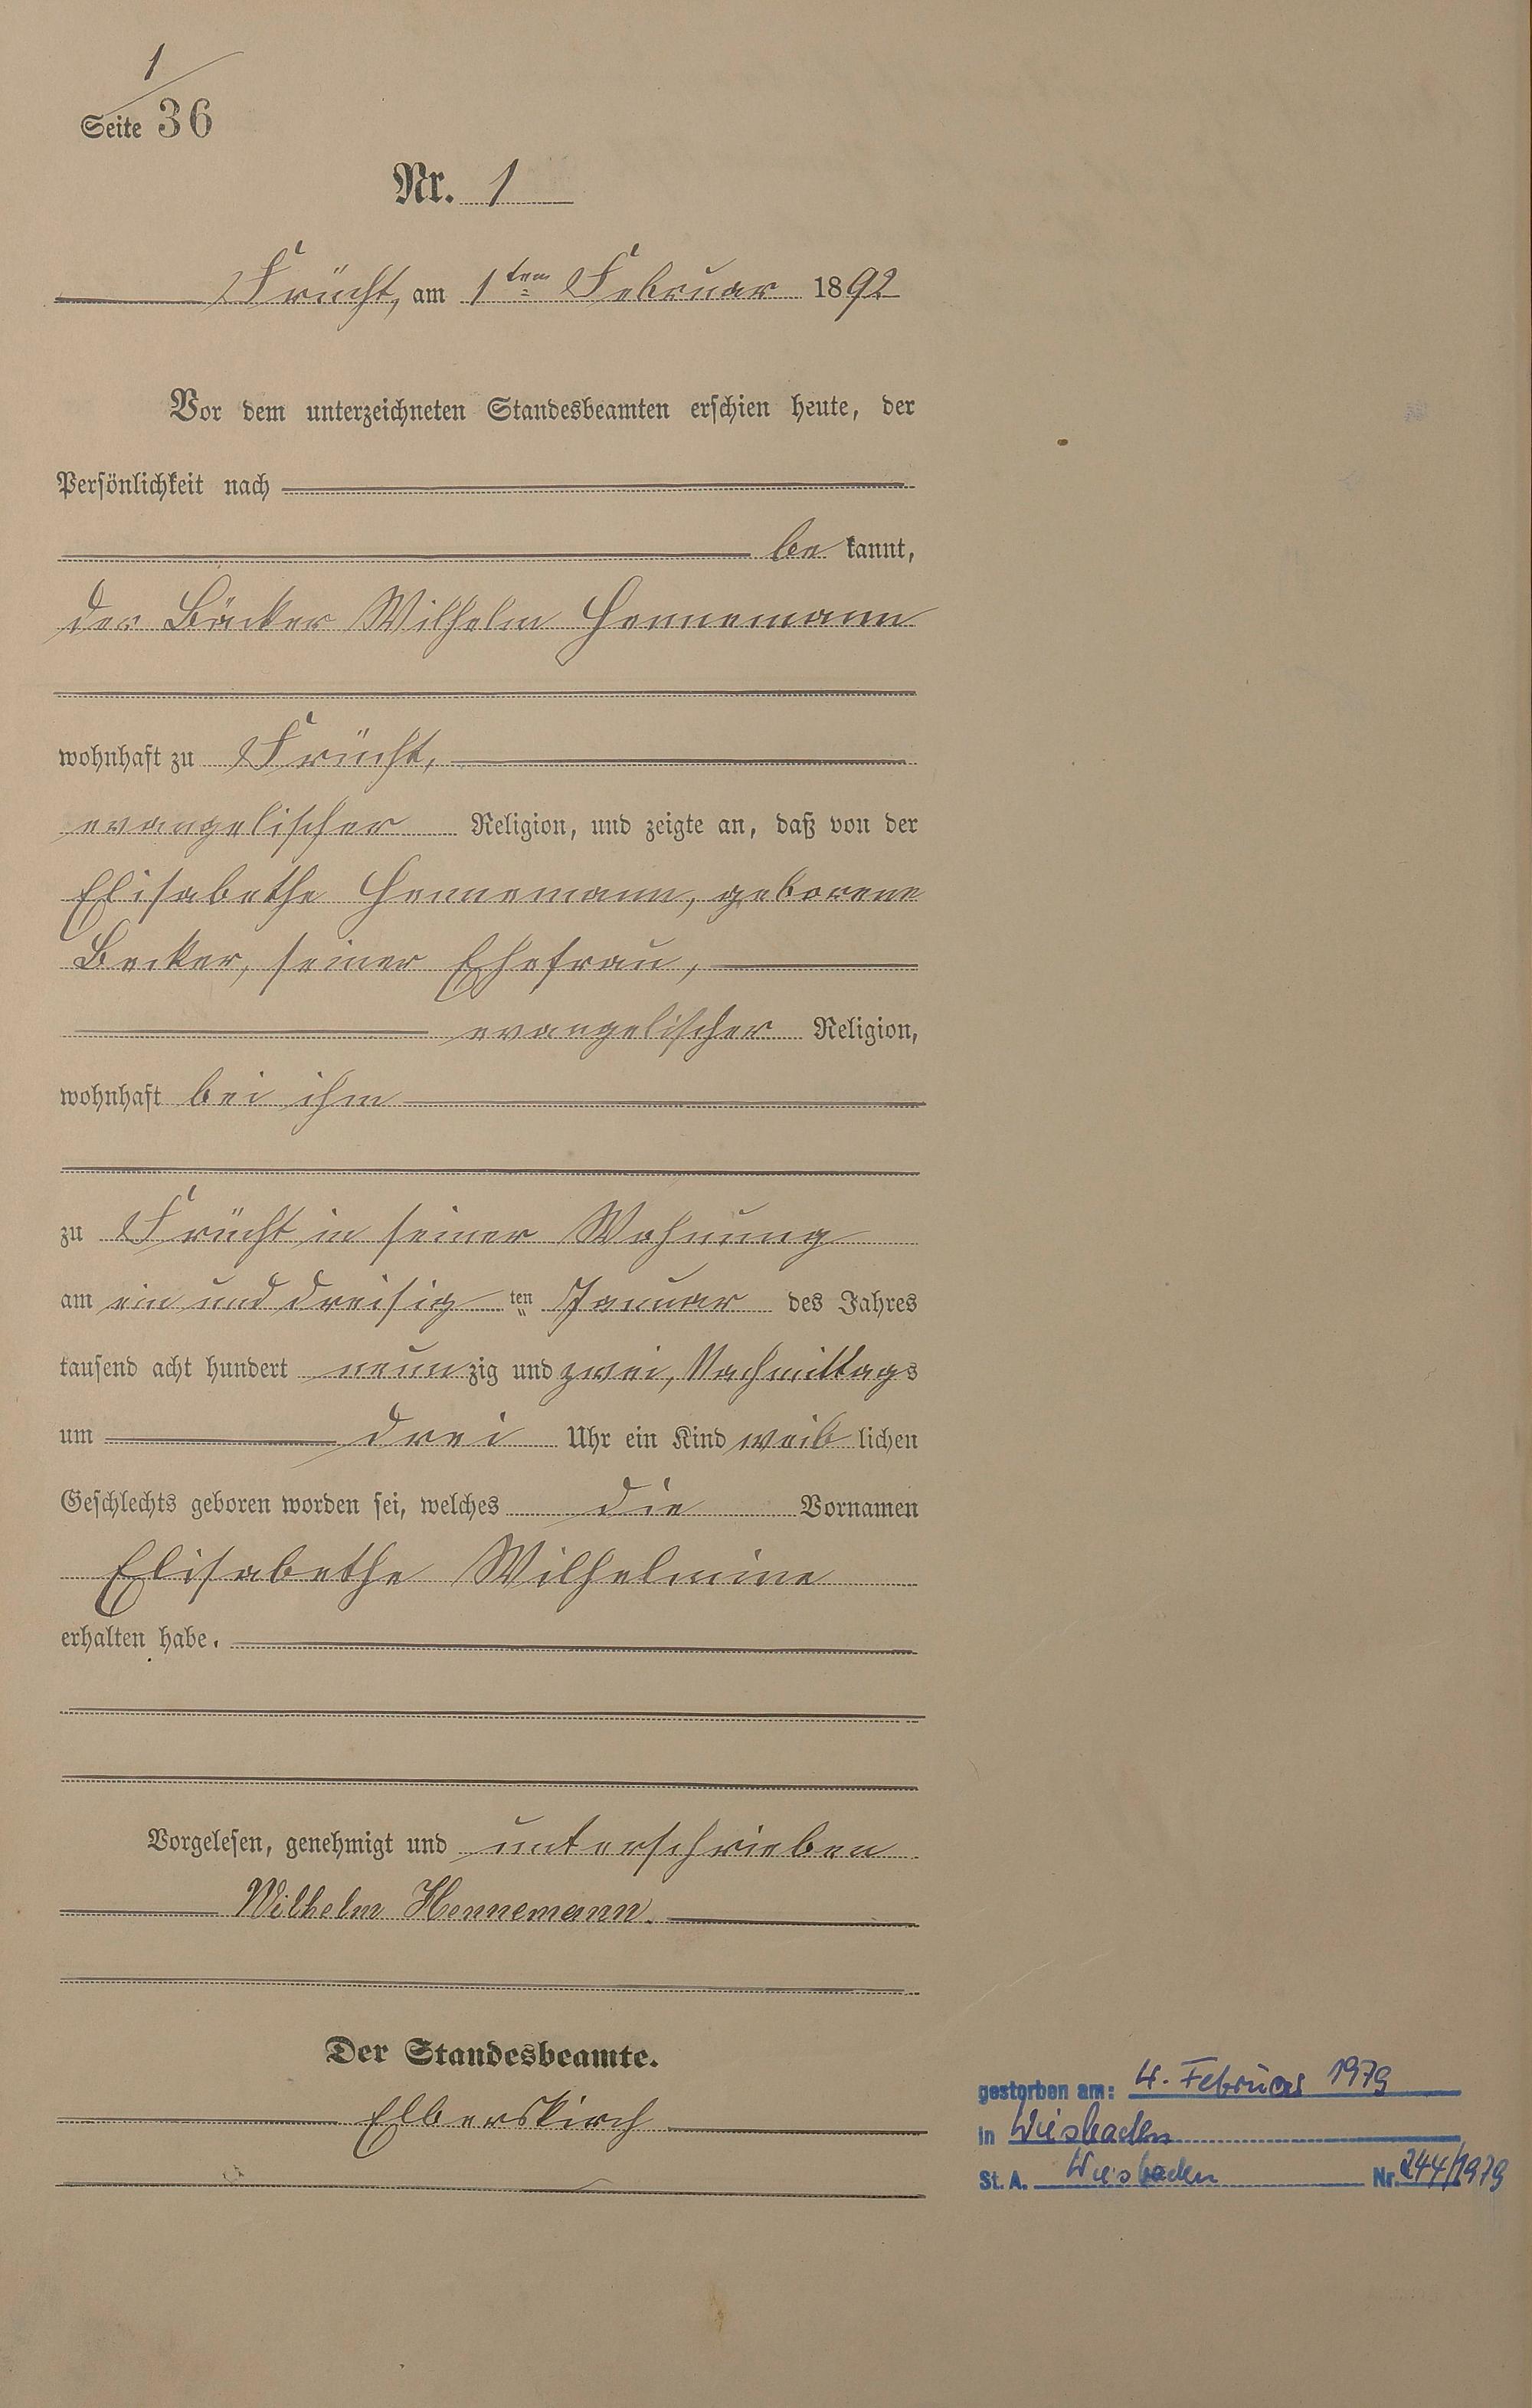 1
Seite 36
Nr. 1
Frücht, am 1ten Februar 1892
Vor dem unterzeichneten Standesbeamten erschien heute, der
Persönlichkeit nach
be kannt,
der Bäcker Wilhelm Hennemann
wohnhaft zu Frücht,
evangelischer Religion, und zeigte an, daß von der
Elisabethe Hennemann, geborene
Becker, seiner Ehefrau,
evangelischer Religion,
wohnhaft bei ihm
zu Frücht in seiner Wohnung
am ein und dreisig ten Januar des Jahres
tausend acht hundert neun zig und zwei, Nachmittags
um drei Uhr ein Kind weib lichen
Geschlechts geboren worden sei, welches die Vornamen
Elisabethe Wilhelmine
erhalten habe.
Vorgelesen, genehmigt und unterschrieben
Wilhelm Hennemann.
Der Standesbeamte.
Elberskirch
gestorben am: 4. Februar 1979
in Wiesbaden
St. A. Wiesbaden Nr. 244/1979